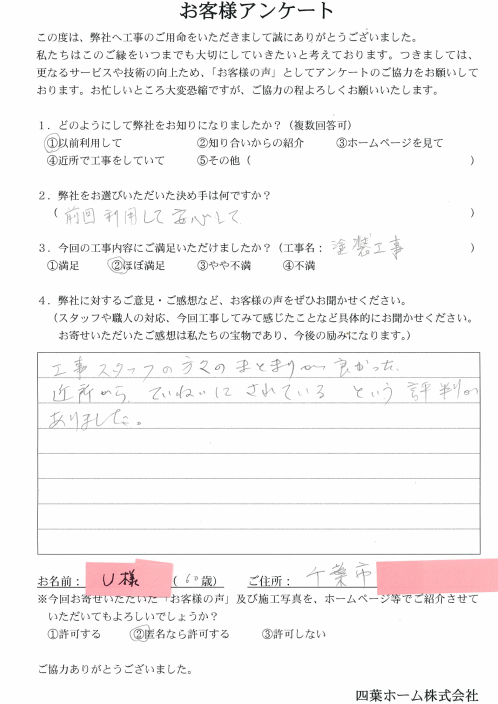 お客様アンケート
この度は、弊社へ工事のご用命をいただきまして誠にありがとうございました。
私たちはこのご縁をいつまでも大切にしていきたいと考えております。つきましては、
更なるサービスや技術の向上ため、「お客様の声」としてアンケートのご協力をお願いして
おります。お忙しいところ大変恐縮ですが、ご協力の程よろしくお願いいたします。
1．どのようにして弊社をお知りになりましたか？（複数回答可）
①以前利用して ②知り合いからの紹介 ③ホームページを見て
④近所で工事をしていて ⑤その他（ ）
2．弊社をお選びいただいた決め手は何ですか？
（ 前回利用して安心して ）
3．今回の工事内容にご満足いただけましたか？（工事名： 塗装工事 ）
①満足 ②ほぼ満足 ③やや不満 ④不満
4．弊社に対するご意見・ご感想など、お客様の声をぜひお聞かせください。
（スタッフや職人の対応、今回工事してみて感じたことなど具体的にお聞かせください。
お寄せいただいたご感想は私たちの宝物であり、今後の励みになります。）
工事スタッフの方々のまとまりが良かった。
近所から、ていねいにされている という評判が
ありました。
お名前： U様 （ 60歳） ご住所： 千葉市
※今回お寄せいただいた「お客様の声」及び施工写真を、ホームページ等でご紹介させて
いただいてもよろしいでしょうか？
①許可する ②匿名なら許可する ③許可しない
ご協力ありがとうございました。
四葉ホーム株式会社